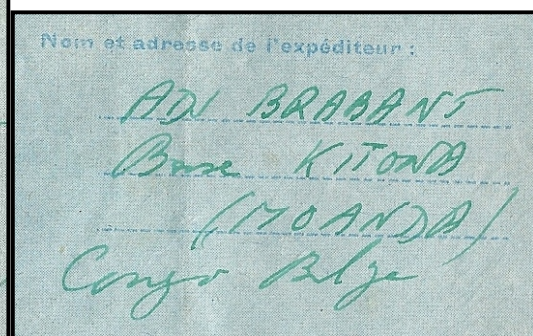 Nom et adresse de l'expéditeur :
ADJ BRABANT
Base KITONA
(MOANDA)
Congo Belge